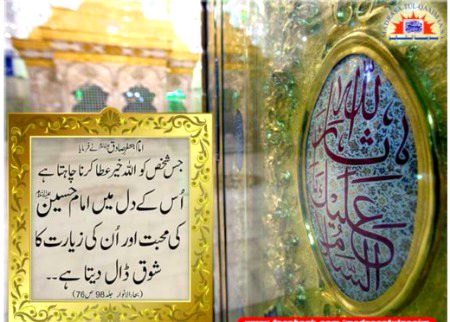 امام جعفر صادق نے فرمایا
جس شخص کو اللہ خیر عطا کرنا چاہتا ہے
اُس کے دل میں امام حسین
کی محبت اور اُن کی زیارت کا
شوق ڈال دیتا ہے۔۔
(بحارالانوار جلد 98 ص 76)
السلام عليك يا ثار الله